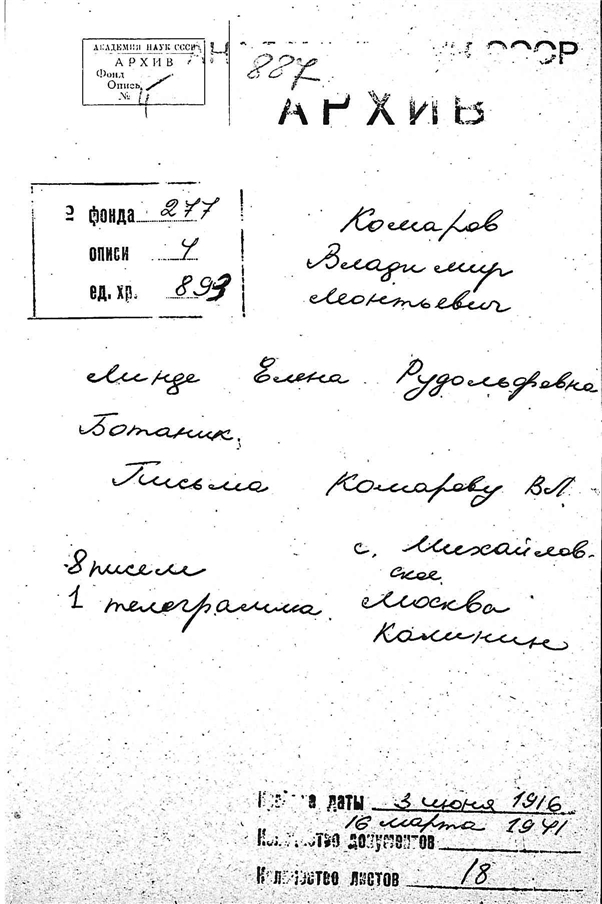 АКАДЕМИЯ НАУК СССР
АРХИВ
Фонд
Опись
№ 4
887
СССР
АРХИВ
№ фонда 277
описи 4
ед. хр. 893
Комаров
Владимир
Леонтьевич
Линде Елена Рудольфовна
Ботаник.
Письма Комарову В.Л.
8 писем
1 телеграмма.
с. Михайлов-
ское.
Москва
Калинин
Крайние даты 3 июня 1916
16 марта 1941
Количество документов
Количество листов 18